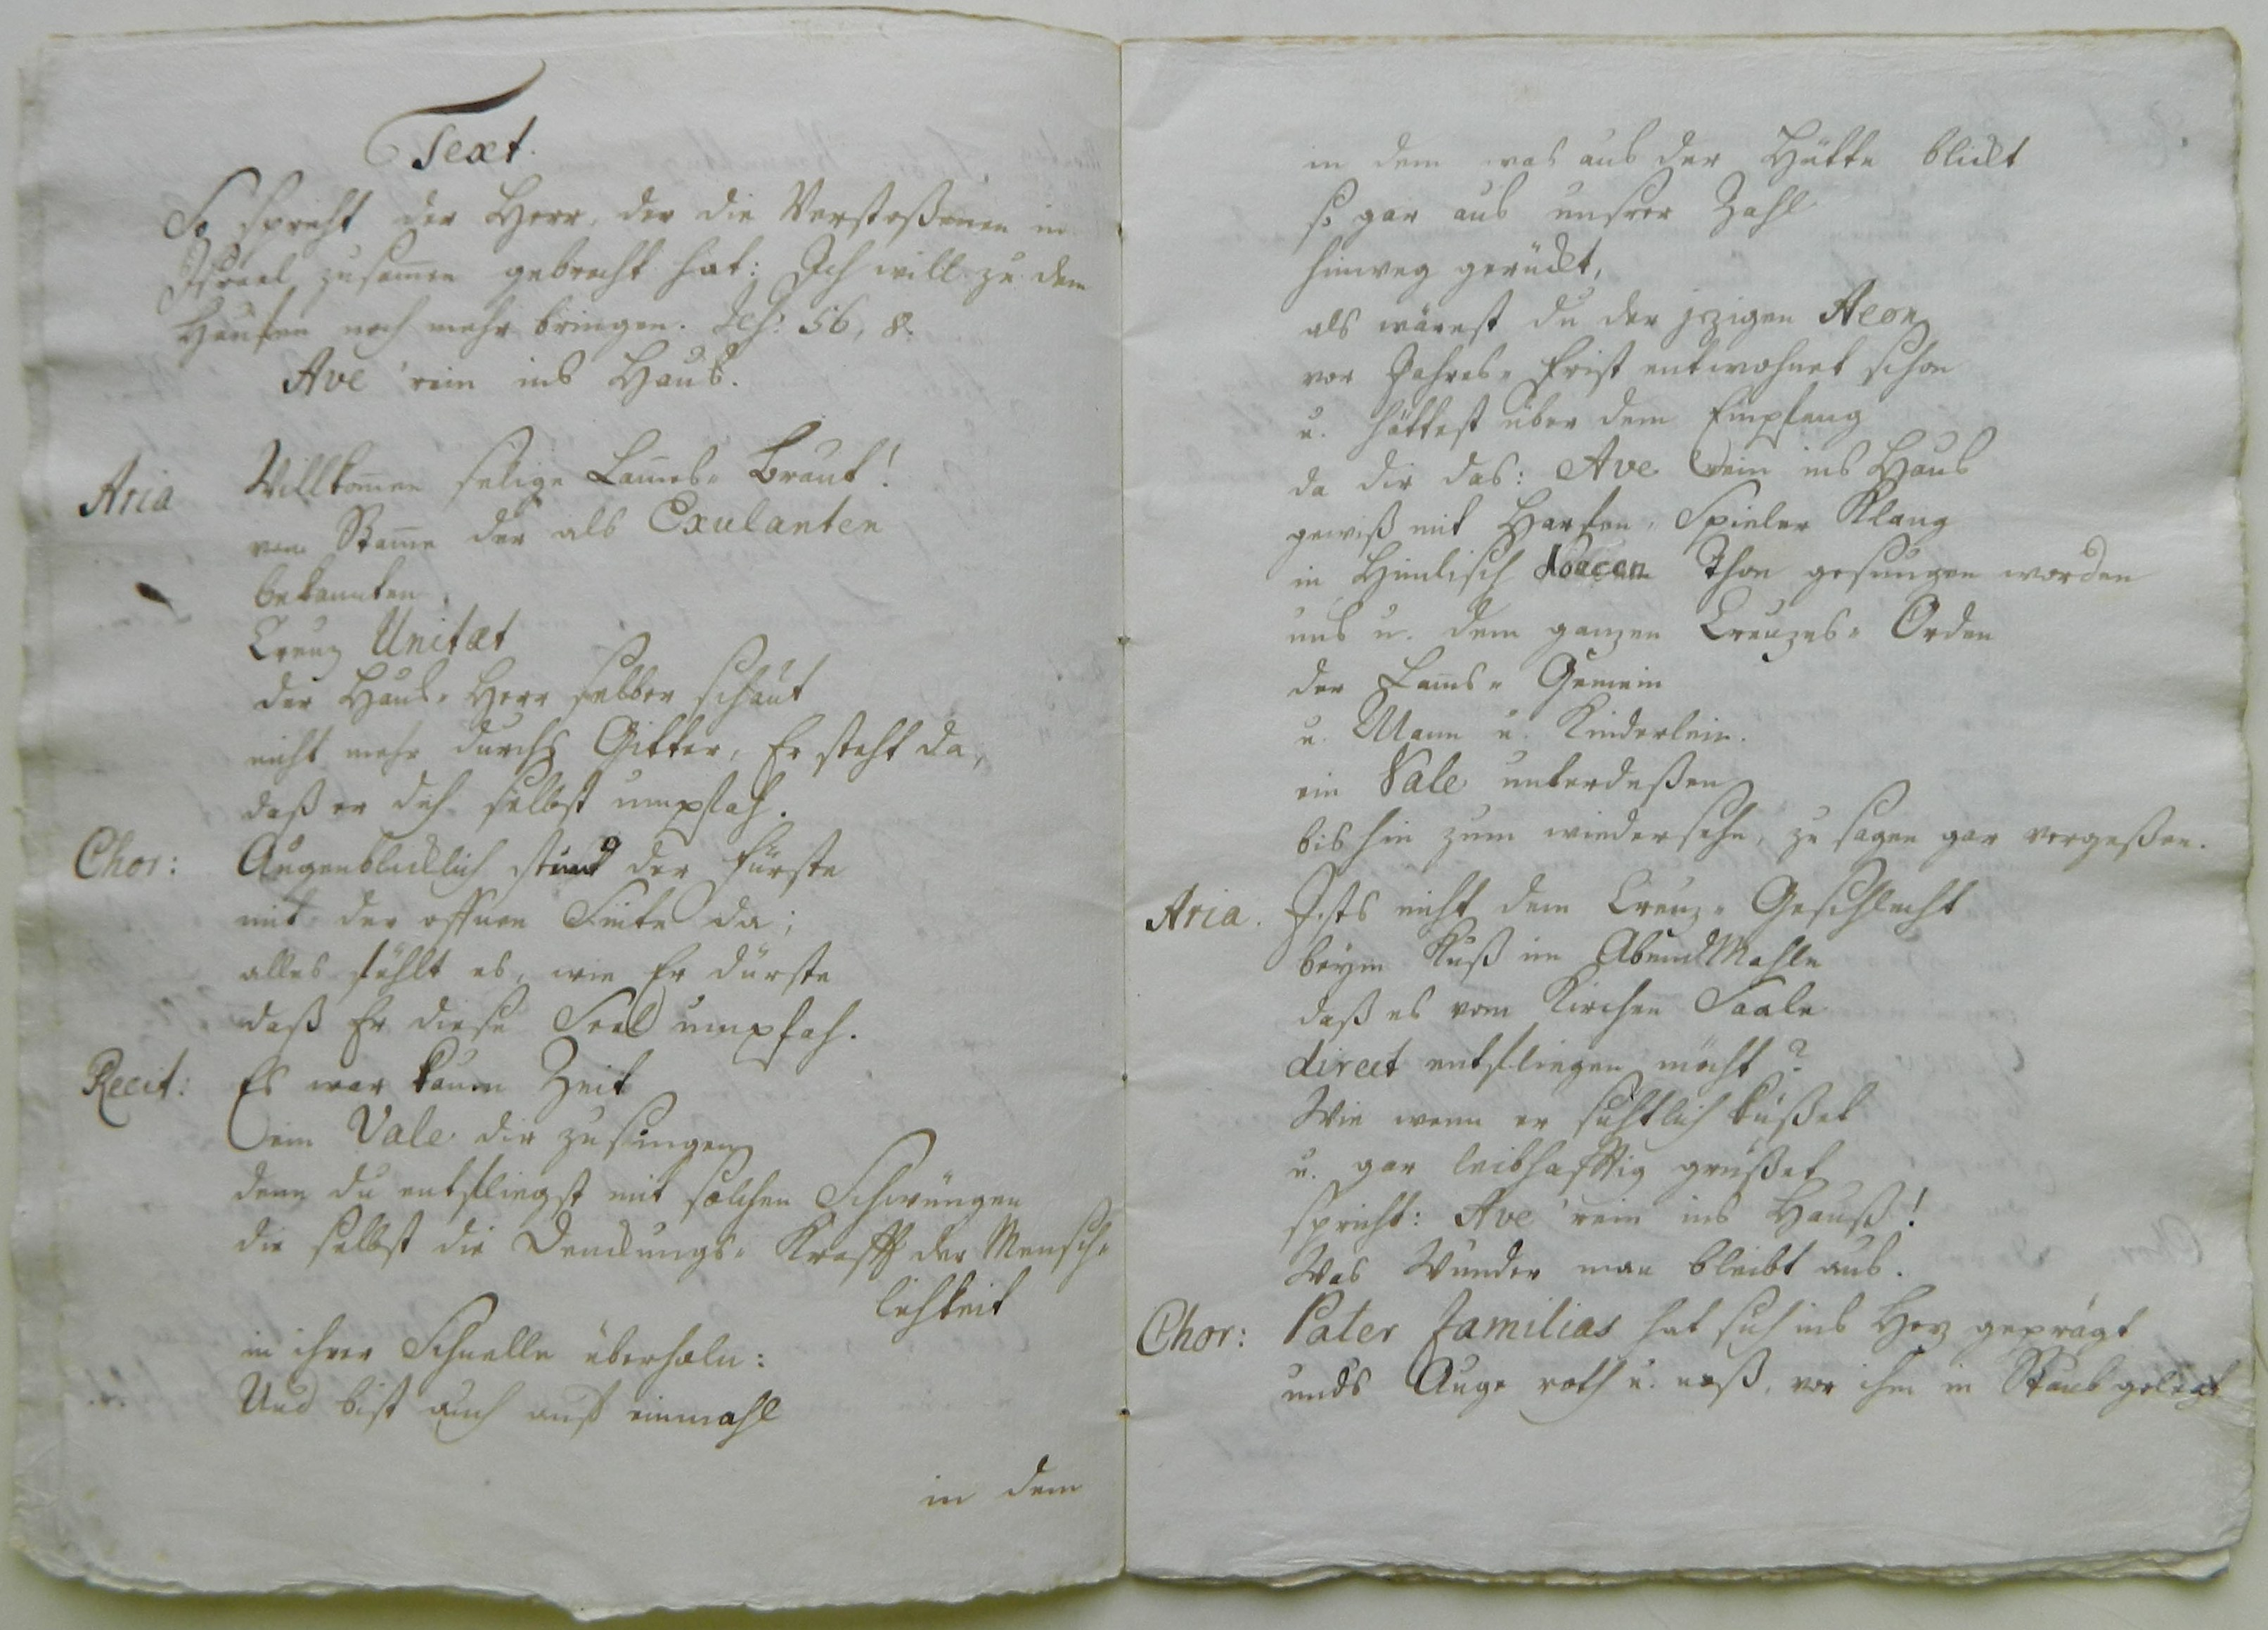 Text.
So spricht der Herr, der die Verstoßenen in
Israel zusam̅en gebracht hat: Ich will zu dem
Haufen noch mehr bringen. Jes: 56, 8.
Ave 'rein ins Haus.
Aria Willkom̅en selige Lam̅es-Braut!
vom Stam̅e der als Exulanten
bekannten
Creuz Unitæt
der Haus-Herr selber schaut
nicht mehr durchs Gitter, Er steht da,
daß er dich selbst umpfah.
Chor: Augenblicklich stund der Fürste
mit der offnen Seite da;
alles fühlt es, wie Er dürste
daß Er diese Seel umpfah.
Recit: Es war kaum Zeit
ein Vale dir zu singen
denn du entfliegst mit solchen Schwüngen
die selbst die Denckungs-Krafft der Mensch-
lichkeit
in ihrer Schnelle überholn:
Und bist auch auf einmahl
in dem
in dem was aus der Hütte blickt
so gar aus unsrer Zahl
hinweg gerückt,
als wärest du der jzigen Aeon
vor Jahres-Frist entwohnet schon
u. hättest über dem Empfang
da dir das: Ave 'rein ins Haus
gewiß mit Harfen-Spieler Klang
in Him̅lisch Thon gesungen worden
uns u. dem ganzen Creuzes-Orden
der Lam̅s-Gemein
u. Mann u. Kinderlein.
ein Vale unterdeßen
bis hin zum wiedersehn, zu sagen gar vergeßen.
Aria. Ists nicht dem Creuz-Geschlecht
beym Kuß im AbendMahle
daß es vom Kirchen Saale
direct entfliegen möcht?
Wie wenn er sichtlich küßet
u. gar leibhafftig grüßet
spricht: Ave 'rein ins Hauß!
Was Wunder man bleibt aus.
Chor: Pater familias hat sich ins Herz geprägt
unds Auge roth u. naß, vor ihm in Staub gelegt